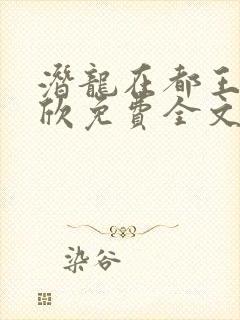 潛龍在都王
欣免費全文
染谷